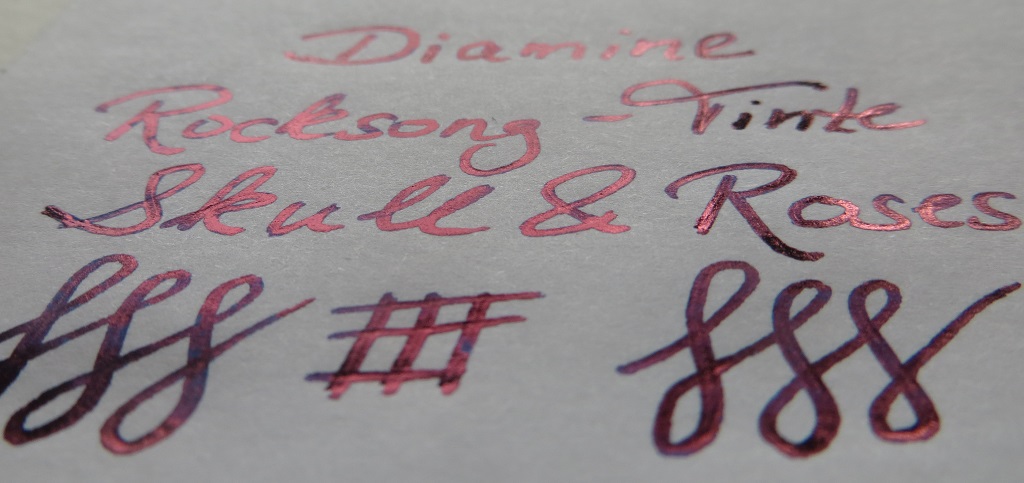 Diamine
Rocksong - Tinte
Skull & Roses